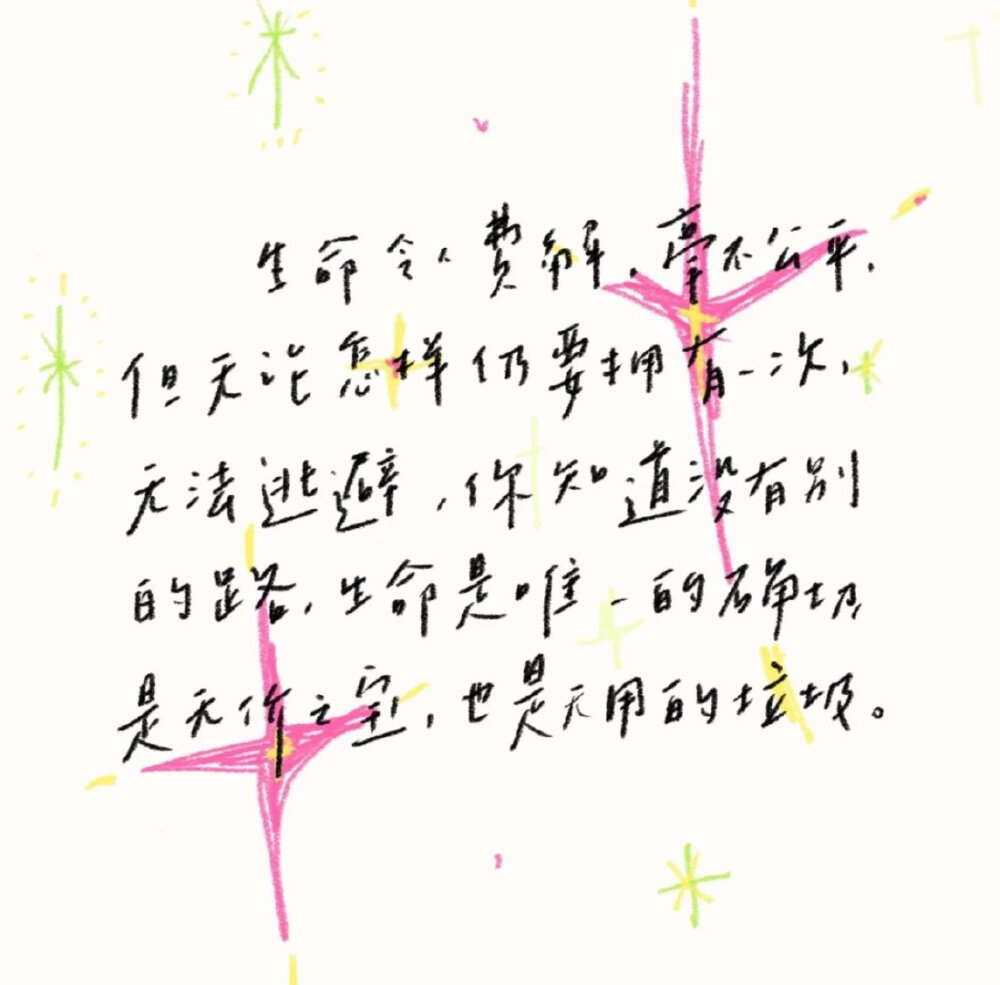 生命令人费解,毫不公平,
但无论怎样仍要拥有一次,
无法逃避,你知道没有别
的路,生命是唯一的确切,
是无价之宝,也是无用的垃圾。